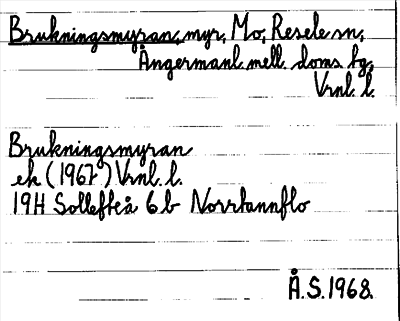 Brukningsmyran, myr, Mo, Resele sn,
Ångermanl. mell. doms. tg,
Vrnl. l.
Brukningsmyran
ek (1967) Vrnl. l.
19H Sollefteå 6b Norrtannflo
Å.S. 1968.